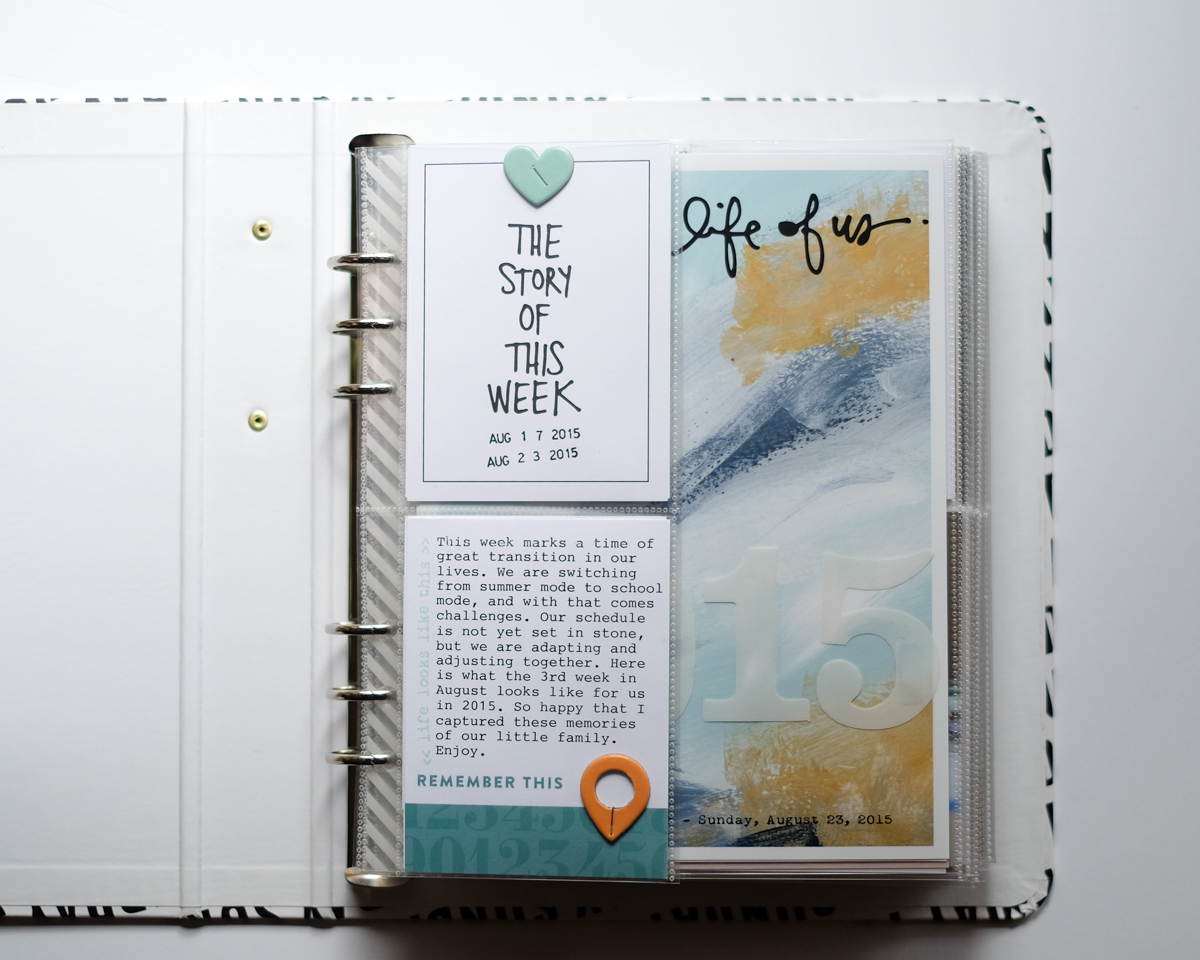 THE
STORY
OF
THIS
WEEK
AUG 1 7 2015
AUG 2 3 2015
This week marks a time of
great transition in our
lives. We are switching
from summer mode to school
mode, and with that comes
challenges. Our schedule
is not yet set in stone,
but we are adapting and
adjusting together. Here
is what the 3rd week in
August looks like for us
in 2015. So happy that I
captured these memories
of our little family.
Enjoy.
<< life looks like this >>
REMEMBER THIS
1234567
90123456
life of us.
015
- Sunday, August 23, 2015